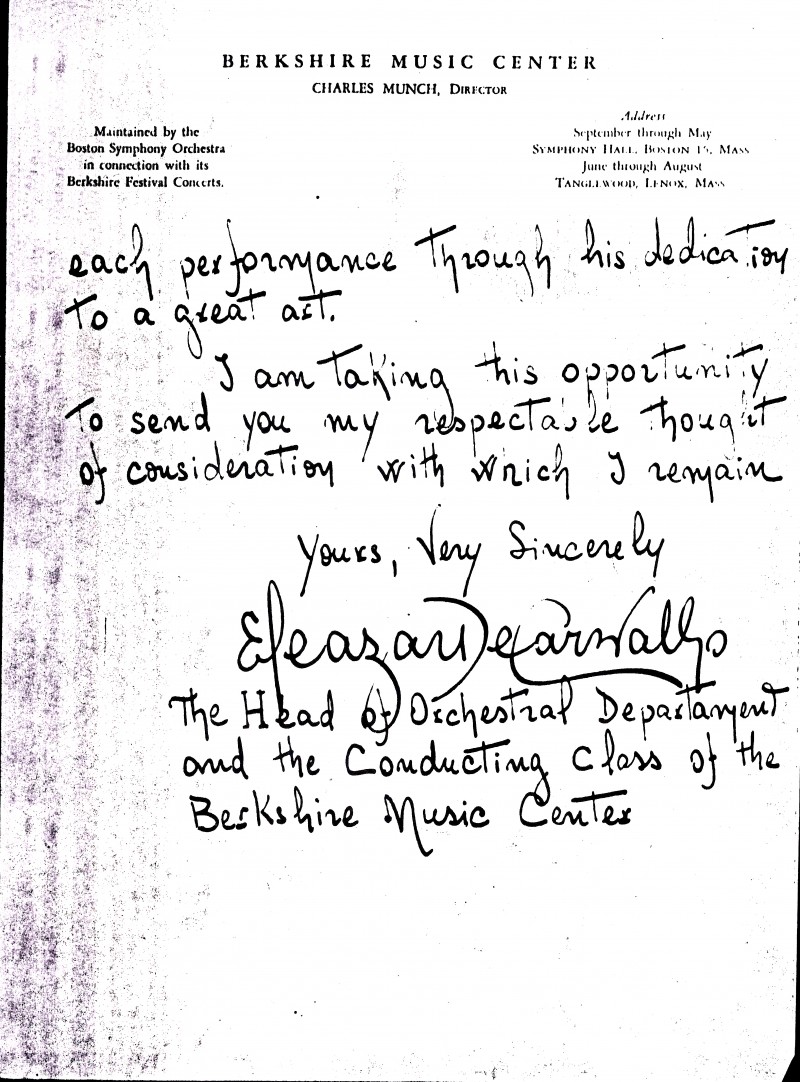 BERKSHIRE MUSIC CENTER
CHARLES MUNCH, DIRECTOR
Maintained by the
Boston Symphony Orchestra
in connection with its
Berkshire Festival Concerts.
Address
September through May
SYMPHONY HALL, BOSTON 15, MASS
June through August
TANGLEWOOD, LENOX, MASS
each performance through his dedication
to a great art.
I am taking this opportunity
to send you my respectable thought
of consideration with which I remain
Yours, Very Sincerely
Eleazar De Carvalho
The Head of Orchestral Departament
and the Conducting Class of the
Berkshire Music Center